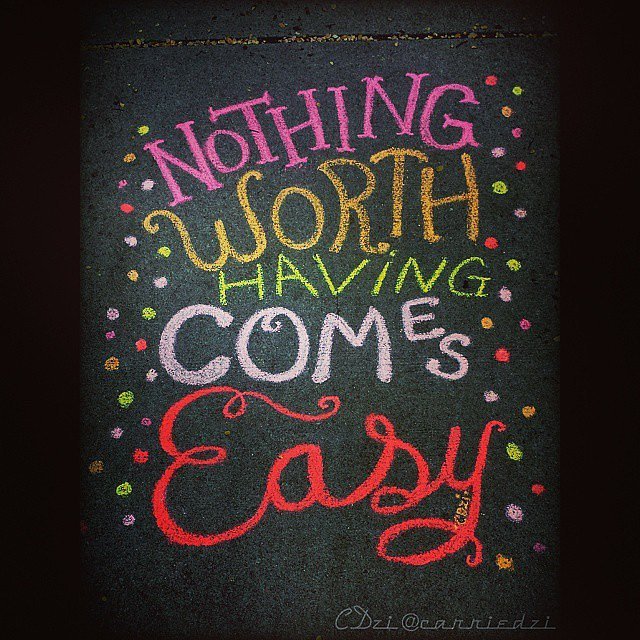 NOTHING
WORTH
HAViNG
COMES
Easy
CDzi
CDzi@carriedzi